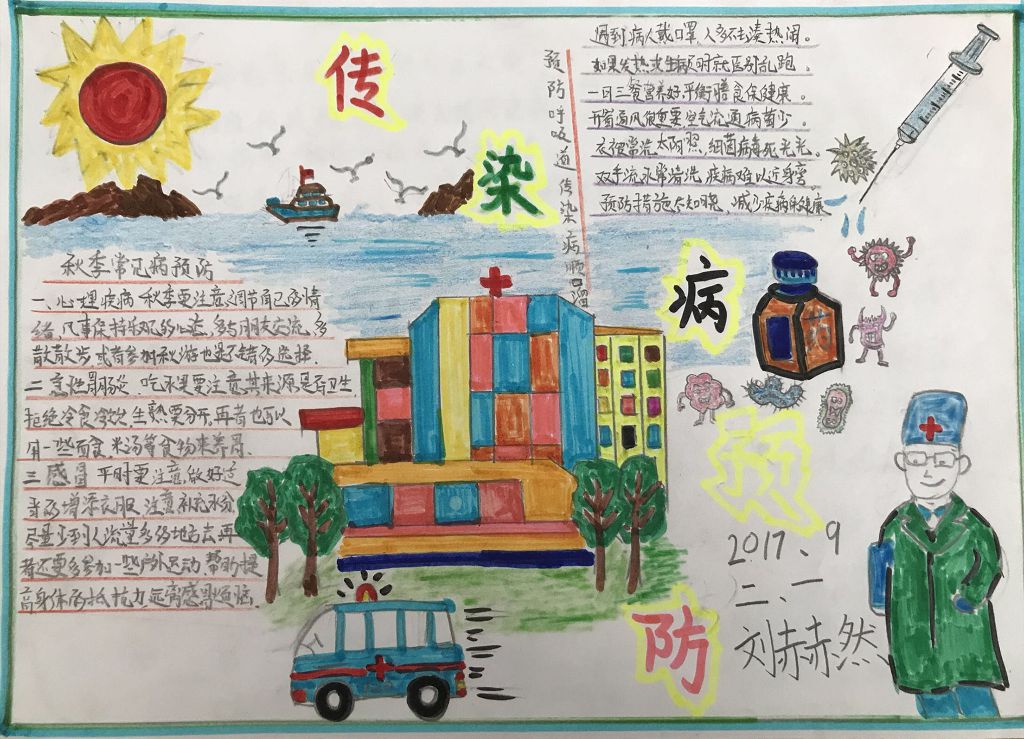 传
染
病
预
防
预防呼吸道传染病顺口溜
遇到病人戴口罩,人多不去凑热闹。
如果发热求生病及时就医别乱跑。
一日三餐营养好,平衡膳食保健康。
开窗通风很重要空气流通病菌少。
衣被常洗太阳照,细菌病毒死光光。
双手流水常清洗,疾病难以近身旁。
预防措施人人知晓,减少疾病保健康
秋季常见病预防
一、心理疾病 秋季要注意调节自己的情
绪,凡事保持乐观的心态,多与朋友交流,多
散散步 或者参加秋游也是不错的选择.
二 急性胃肠炎 吃水果要注意其来源是否卫生
拒绝冷食冷饮,生熟要分开,再者也可以
用一些面食 米汤等食物来养胃.
三 感冒 平时要注意,做好适
当的增添衣服,注意补充水分,
尽量少到人流量多的地方去再
者还要多参加一些户外运动 帮助提
高身体的抵抗力 远离感冒烦恼.
2017、9
二、一
刘赫赫然